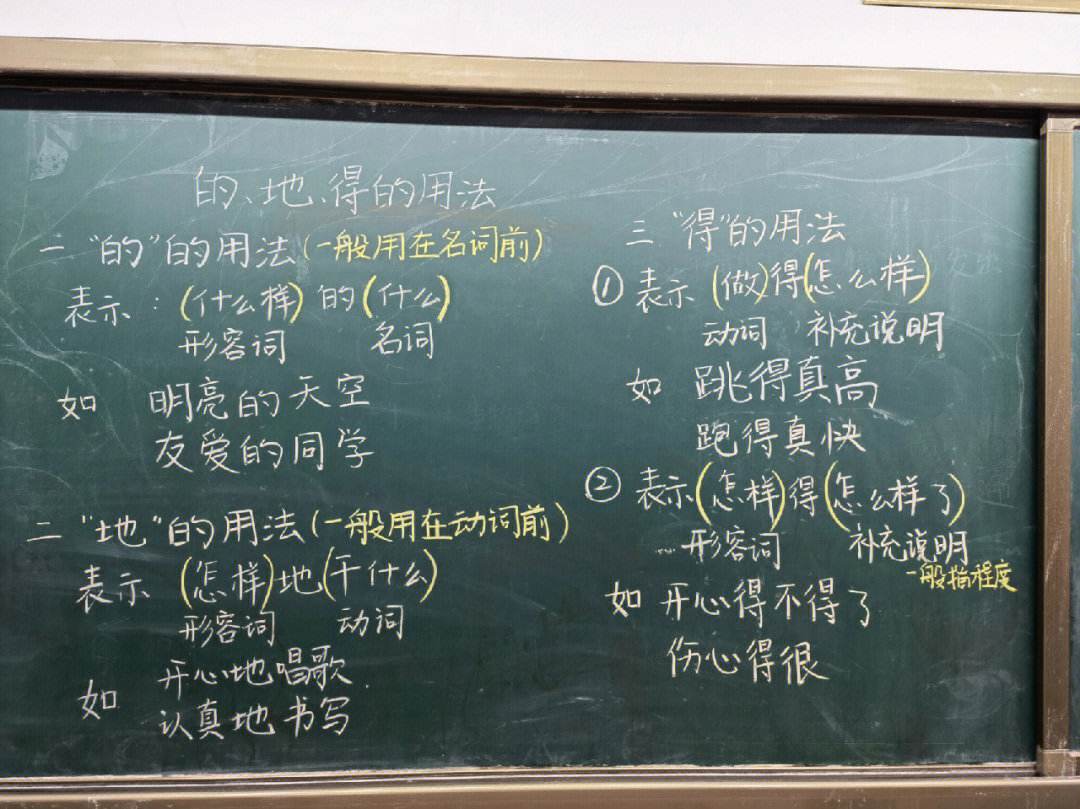 的、地、得的用法
一 "的"的用法(一般用在名词前)
表示:(什么样)的(什么)
形容词 名词
如 明亮的天空
友爱的同学
二 "地"的用法(一般用在动词前)
表示 (怎样)地(干什么)
形容词 动词
如 开心地唱歌
认真地书写
三 "得"的用法
① 表示(做)得(怎么样)
动词 补充说明
如 跳得真高
跑得真快
② 表示(怎样)得(怎么样了)
形容词 补充说明
一般指程度
如 开心得不得了
伤心得很